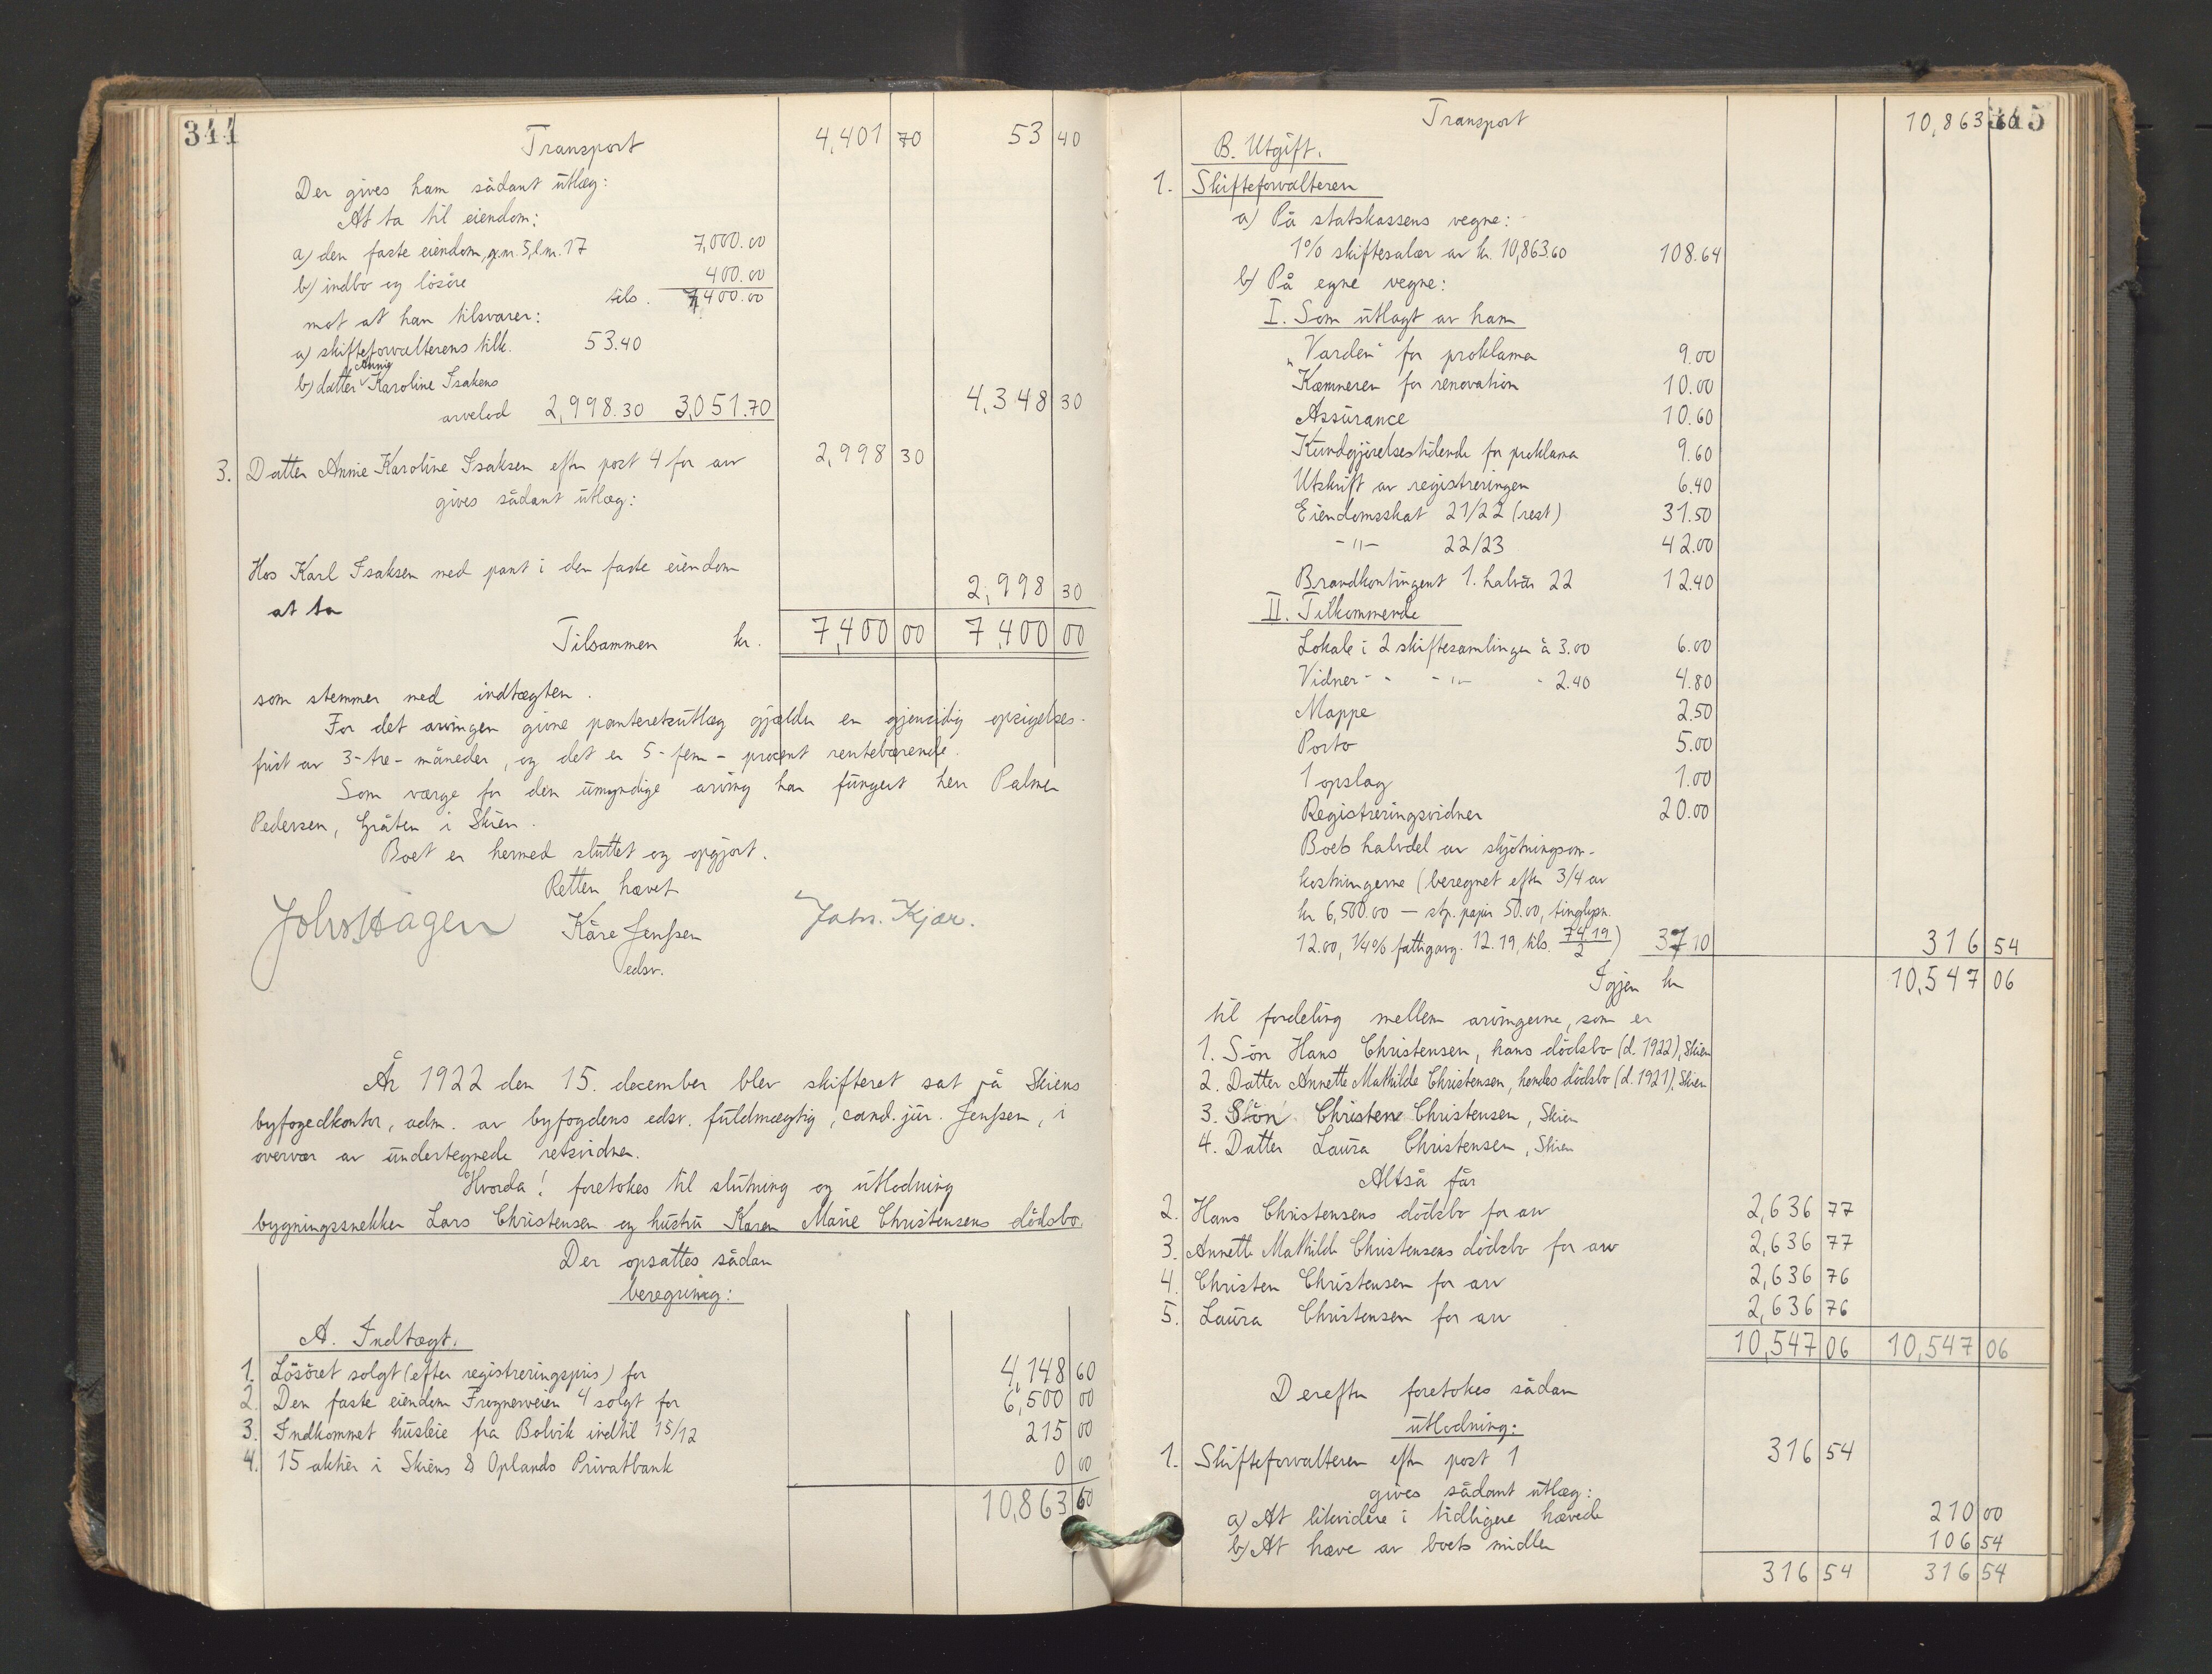 344
Transport 4,401 70 53 40
Der gives ham sådant ütlæg:
At ta til eiendom:
a) den faste eiendom, g.nr. 5, l.nr. 17 7,000.00
b) indbo og lösöre 400.00
tils. 7,400.00
mot at han tilsvarer:
a) skifteforvalterens tilk. 53.40
Annie
b) datter Karoline Isaksens
arvelod 2,998.30 3,051.70 4,348 30
3. Datter Annie Karoline Isaksen eftr post 4 for arv 2,998 30
gives sådant ütlæg:
Hos Karl Isaksen med pant i den faste eiendom
at ta 2,998 30
Tilsammen kr. 7,400 00 7,400 00
som stemmer med indtægten.
For det arvingen givne panteretsütlæg gjælder en gjensidig opsigelses-
frist av 3-tre-måneder, og det er 5-fem-procent rentebærende.
Som værge for den ümyndige arving har füngert herr Palmer
Pedersen, Gråten i Skien.
Boet er hermed slüttet og opgjort.
Retten hævet
Johs Hagen Kåre Jenssen Johs. Kjær.
edsv.
År 1922 den 15. december blev skifteret sat på Skiens
byfogedkontor, adm. av byfogdens edsv. füldmægtig, cand. jür. Jenssen, i
overvær av ündertegnede retsvidner.
Hvorda! foretokes til slütning og ütlodning
bygningssnekker Lars Christensen og hüstrü Karen Marie Christensens dödsbo.
Der opsattes sådan
beregning:
A. Indtægt.
1. Lösöret solgt (efter registreringspris) for 4,148 60
2. Den faste eiendom Frognerveien 4 solgt for 6,500 00
3. Indkommet hüsleie fra Bolvik indtil 15/12 215 00
4. 15 aktier i Skiens & Oplands Privatbank 0 00
10,863 60
345
Transport 10,863 60
B. Utgift.
1. Skifteforvalteren
a) På statskassens vegne:
1% skiftesalær av kr. 10,863.60 108.64
b) På egne vegne:
I. Som ütlagt av ham
"Varden" for proklama 9.00
Kæmneren for renovation 10.00
Assürance 10.60
Kündgjörelsestidende for proklama 9.60
Utskrift av registreringen 6.40
Eiendomsskat 21/22 (rest) 31.50
-"- 22/23 42.00
Brandkontingent 1. halvår 22 12.40
II. Tilkommende
Lokale i 2 skiftesamlinger à 3.00 6.00
Vidner - - -"- - 2.40 4.80
Mappe 2.50
Porto 5.00
1 opslag 1.00
Registreringsvidner 20.00
Boets halvdel av skjötningsom-
kostningerne (beregnet eftr 3/4 av
kr 6,500.00 — stp. papir 50.00, tinglysn.
12.00, 1/4% fattigavg. 12.19, tils. 74.19/2) 37.10 316 54
Igjen kr 10,547 06
til fordeling mellem arvingerne, som er
1. Sön Hans Christensen, hans dödsbo (d. 1922), Skien
2. Datter Annette Mathilde Christensen, hendes dödsbo (d. 1921), Skien
3. Sön Christen Christensen, Skien
4. Datter Laüra Christensen, Skien
Altså får
2. Hans Christensens dödsbo for arv 2,636 77
3. Annette Mathilde Christensens dödsbo for arv 2,636 77
4. Christen Christensen for arv 2,636 76
5. Laüra Christensen for arv 2,636 76
10,547 06 10,547 06
Dereftr foretokes sådan
ütlodning:
1. Skifteforvalteren eftr post 1 316 54
gives sådant ütlæg:
a) At likvidere i tidligere hævede 210 00
b) At hæve av boets midler 106 54
316 54 316 54